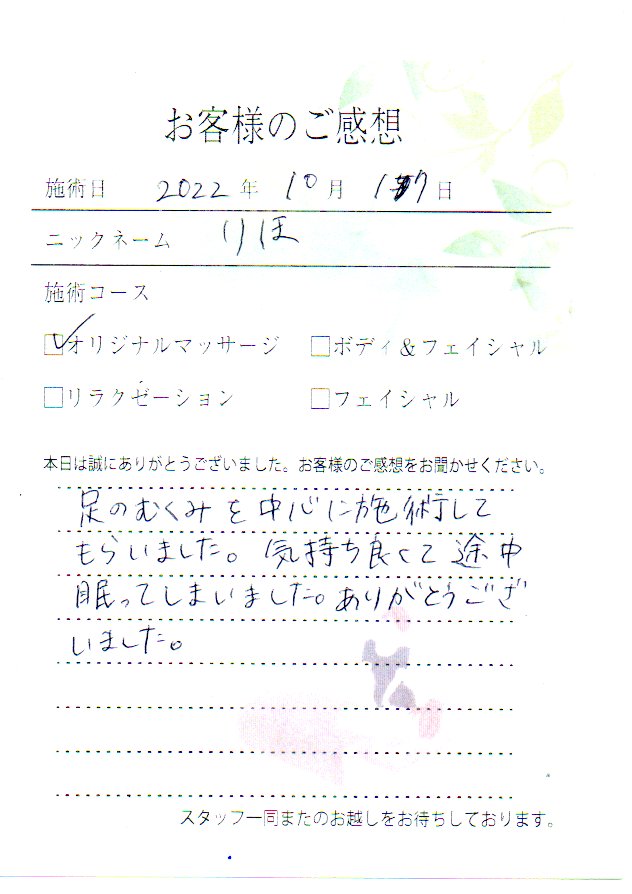 お客様のご感想
施術日 2022年 10月 17日
ニックネーム りほ
施術コース
☑オリジナルマッサージ □ボディ＆フェイシャル
□リラクゼーション □フェイシャル
本日は誠にありがとうございました。お客様のご感想をお聞かせください。
足のむくみを中心に施術して
もらいました。気持ち良くて途中
眠ってしまいました。ありがとうござ
いました。
スタッフ一同またのお越しをお待ちしております。